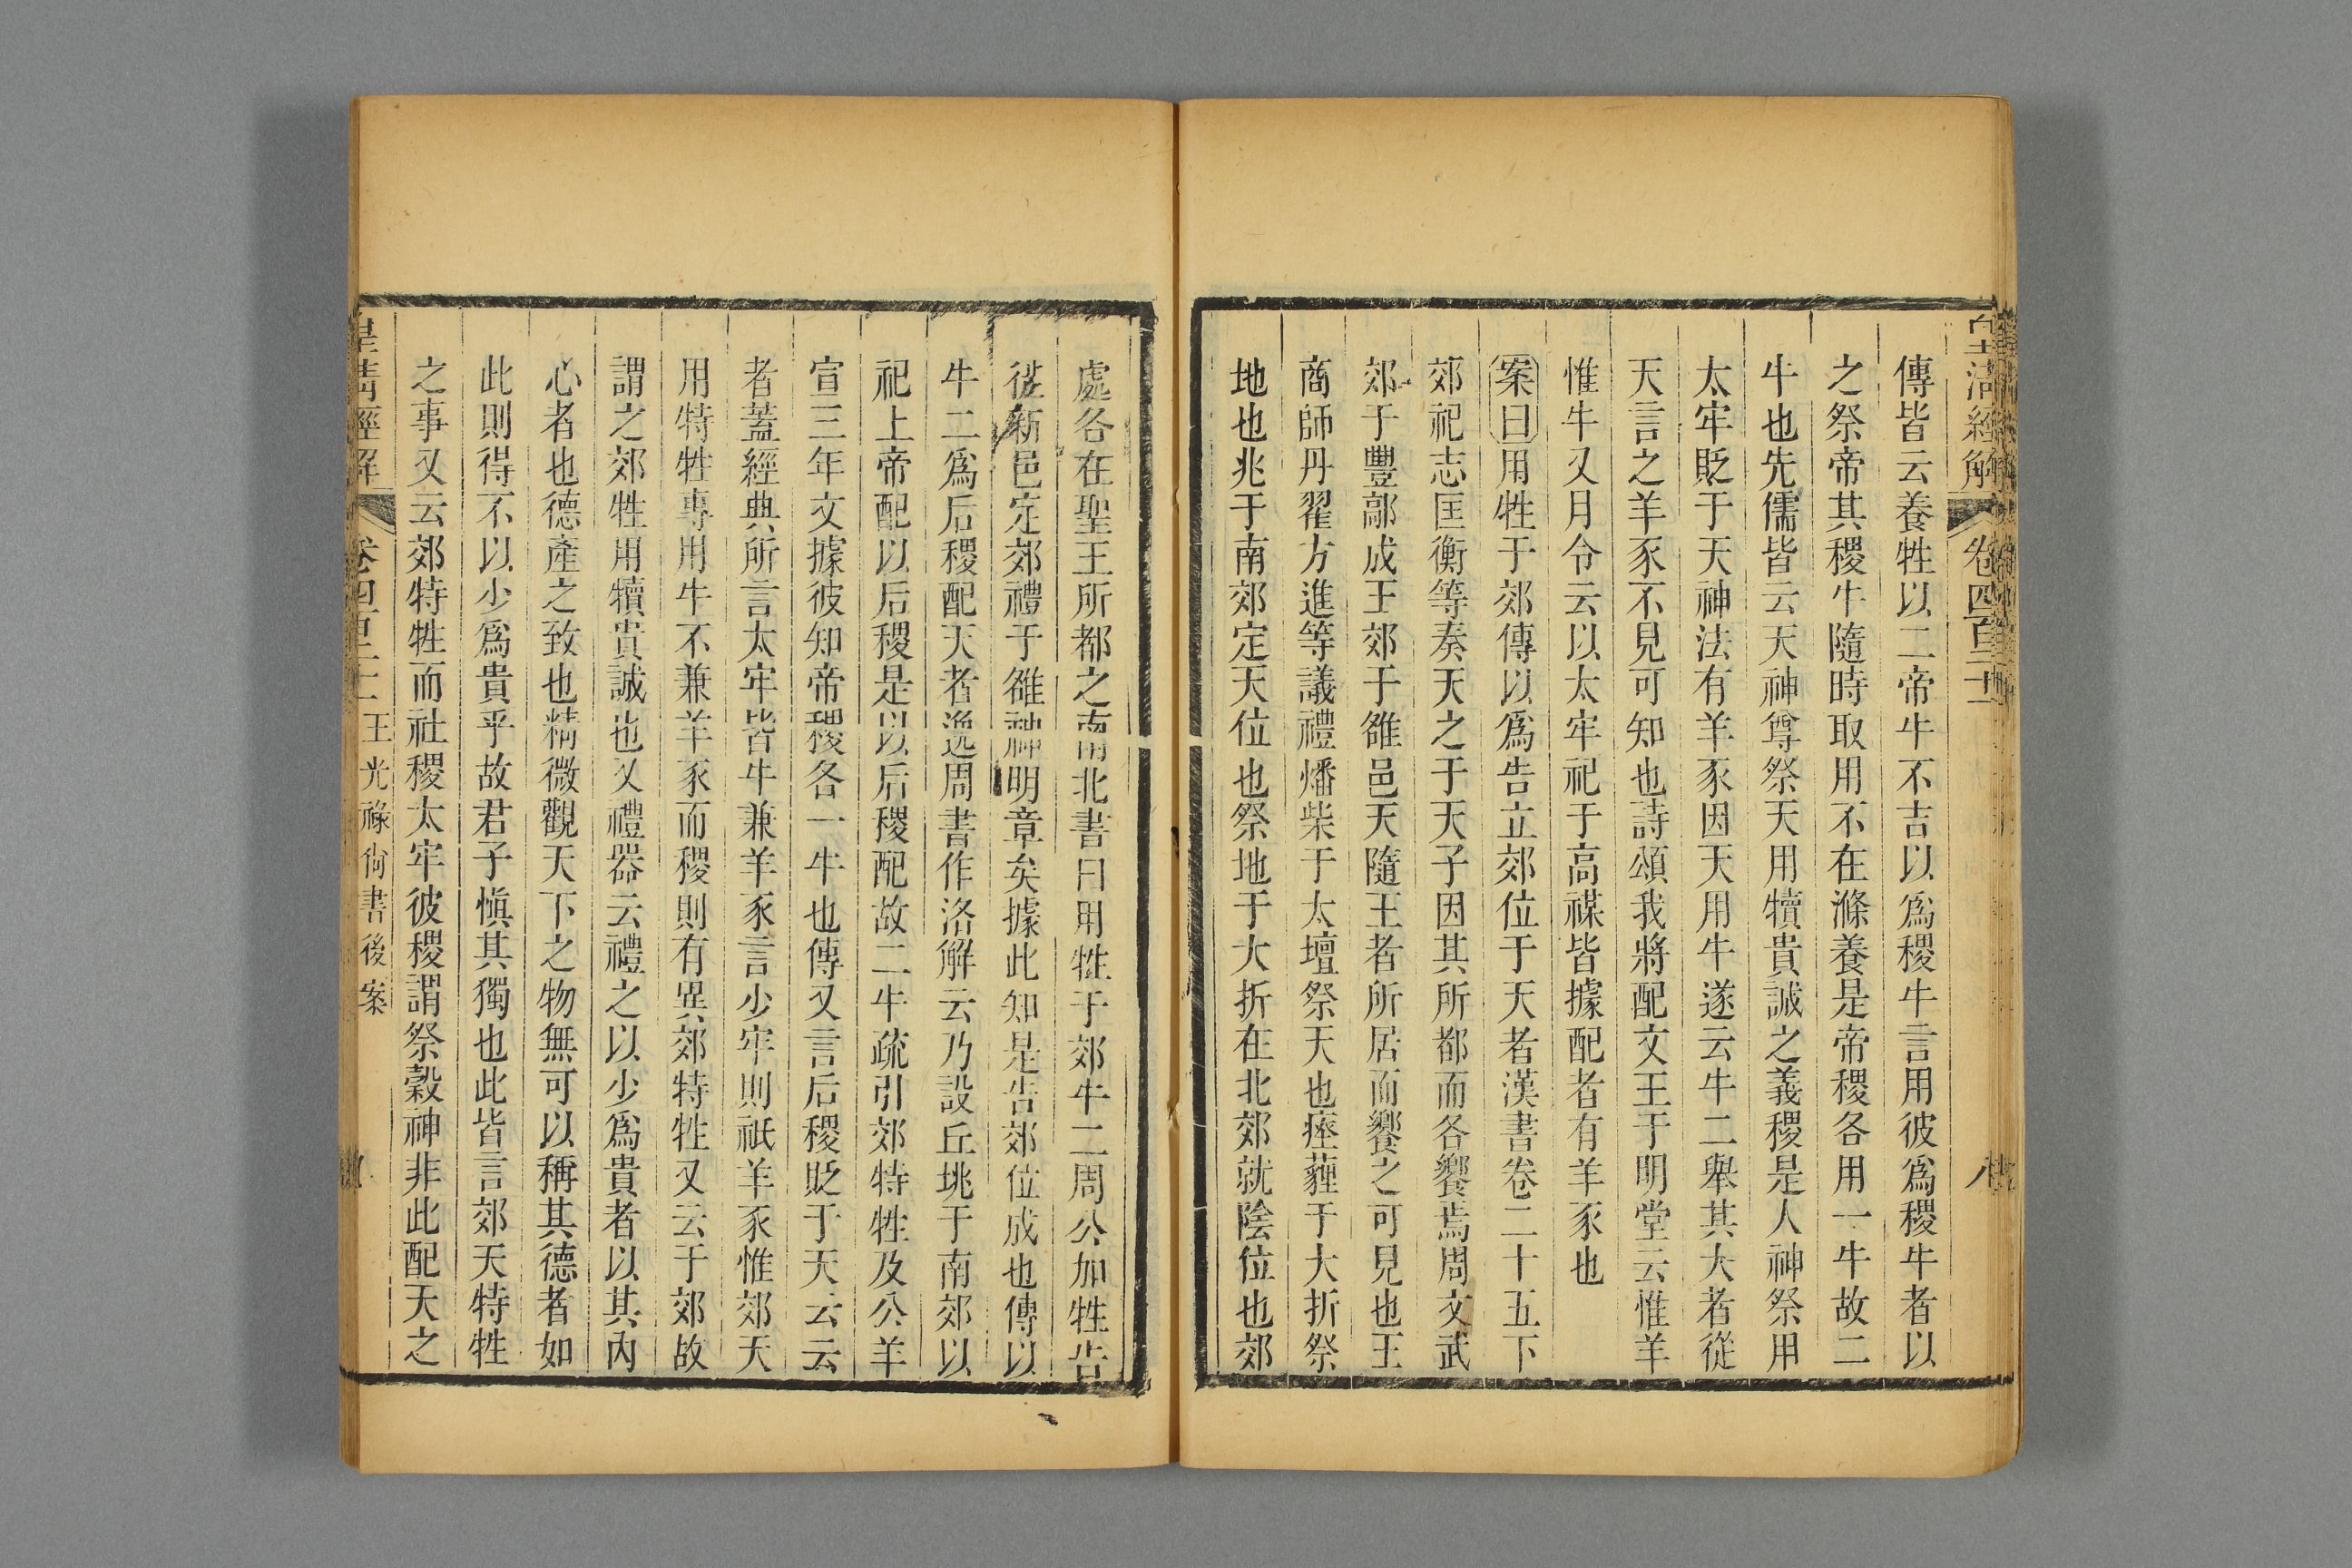 皇清經解 卷四百二十 八
傳皆云養牲以二帝牛不吉以爲稷牛言用彼爲稷牛者以
之祭帝其稷牛隨時取用不在滌養是帝稷各用一牛故二
牛也先儒皆云天神尊祭天用犢貴誠之義稷是人神祭用
太牢貶于天神法有羊豕因天用牛遂云牛二舉其大者從
天言之羊豕不見可知也詩頌我將配文王于明堂云惟羊
惟牛又月令云以太牢祀于高禖皆據配者有羊豕也
案曰用牲于郊傳以爲告立郊位于天者漢書卷二十五下
郊祀志匡衡等奏天之于天子因其所都而各饗焉周文武
郊于豐鄗成王郊于雒邑天隨王者所居而饗之可見也王
商師丹翟方進等議禮燔柴于太壇祭天也瘞薶于大折祭
地也兆于南郊定天位也祭地于大折在北郊就陰位也郊
處各在聖王所都之南北書曰用牲于郊牛二周公加牲告
徙新邑定郊禮于雒神明章矣據此知是告郊位成也傳以
牛二爲后稷配天者逸周書作洛解云乃設丘兆于南郊以
祀上帝配以后稷是以以后稷配故二牛疏引郊特牲及公羊
宣三年文據彼知帝稷各一牛也傳又言后稷貶于天云云
者蓋經典所言太牢皆牛兼羊豕言少牢則祇羊豕惟郊天
用特牲專用牛不兼羊豕而稷則有異郊特牲又云于郊故
謂之郊牲用犢貴誠也又禮器云禮之以少爲貴者以其內
心者也德產之致也精微觀天下之物無可以稱其德者如
此則得不以少爲貴乎故君子愼其獨也此皆言郊天特牲
之事又云郊特牲而社稷太牢彼稷謂祭穀神非此配天之
皇清經解 卷四百二十 王光祿尙書後案